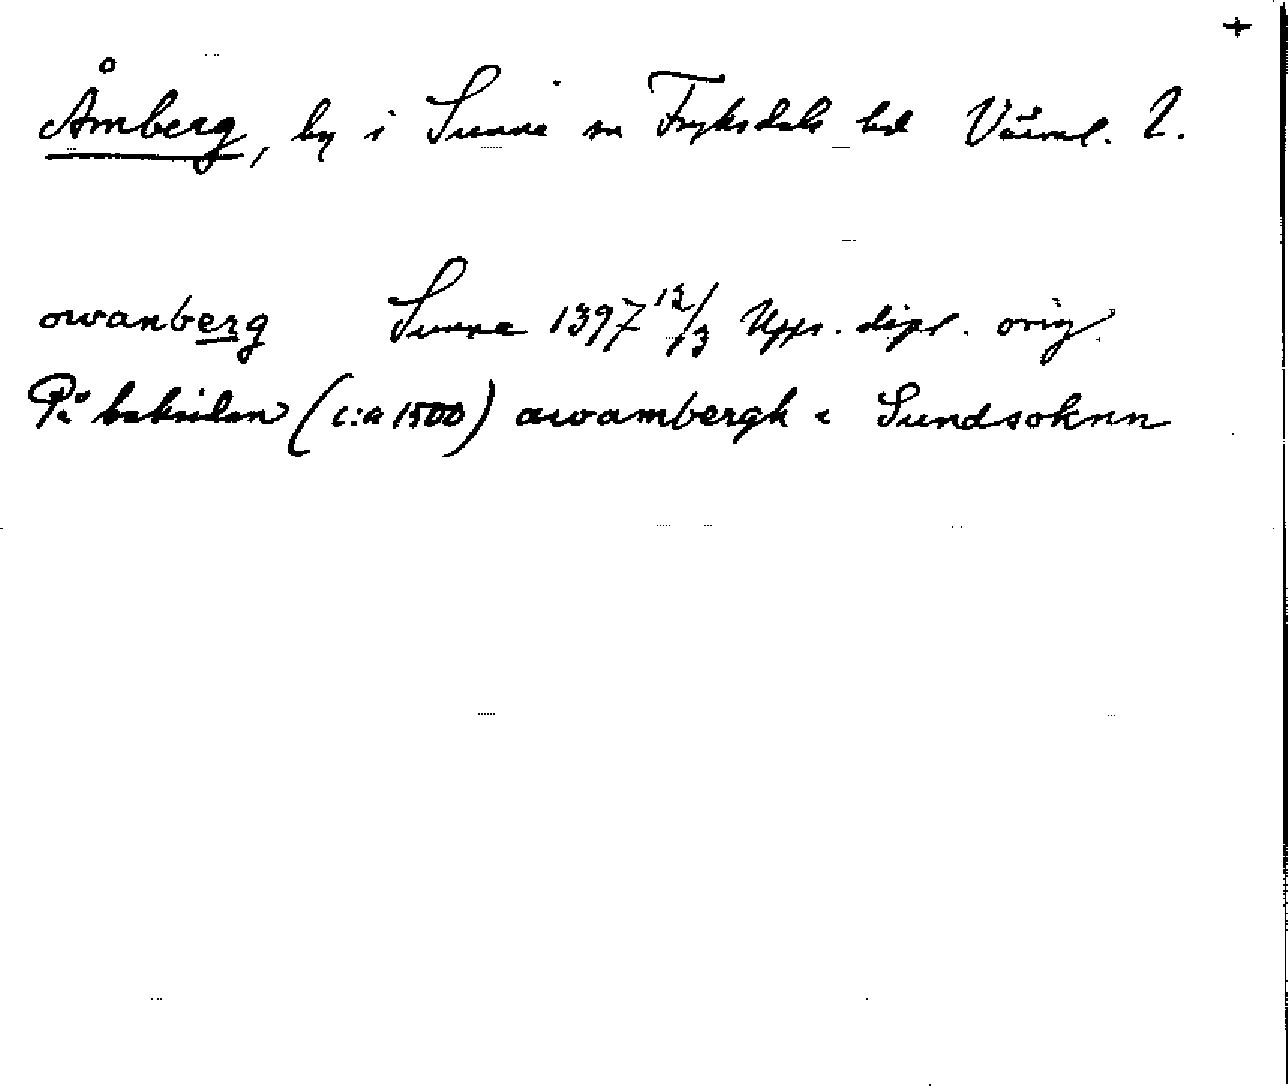 +
Åmberg, by i Sunne sn Fryksdals hd Värml. l.
owanberg Sunne 1397 12/3 Upps. dipl. orig.
På baksidan (c:a 1500) awambergh i Sundsoknn